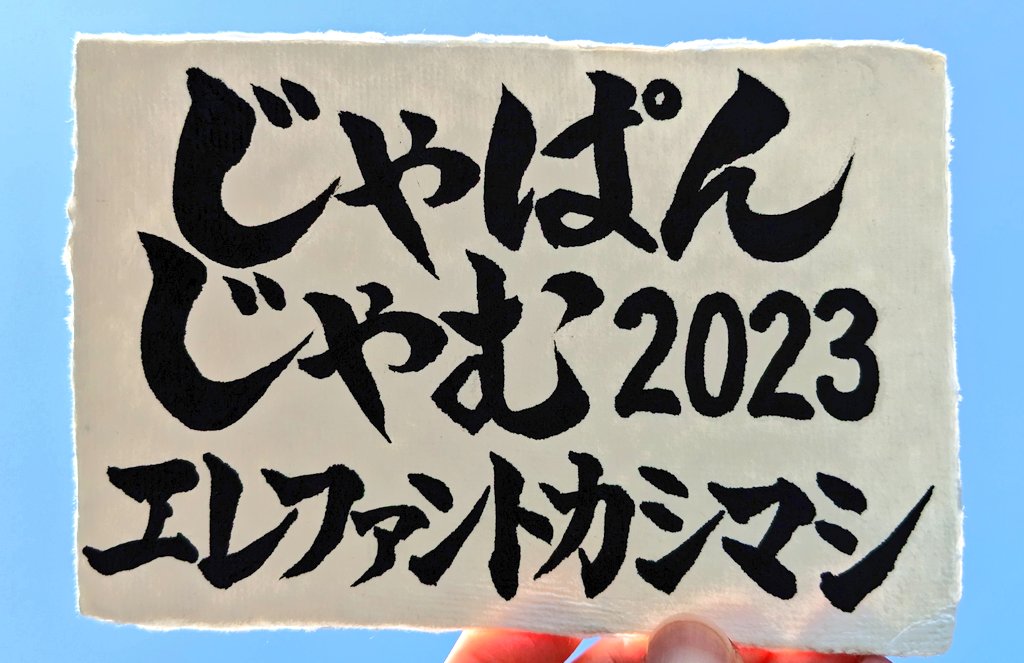 じゃぱん
じゃむ2023
エレファントカシマシ